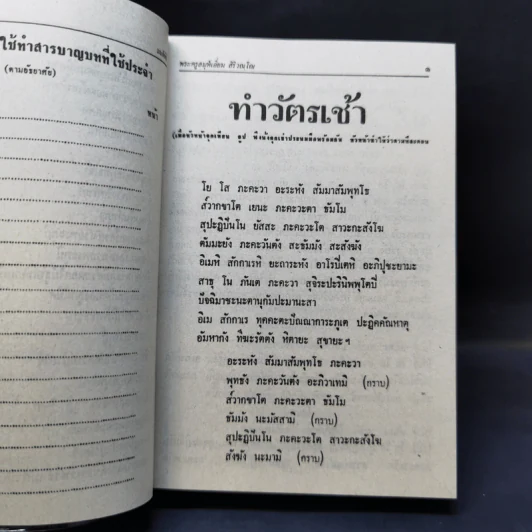 ใช้ทำสารบาญบทที่ใช้ประจำ
(ตามอัธยาศัย)
หน้า
พระครูสมุห์เอี่ยม สิริวณฺโณ
๑
ทำวัตรเช้า
โย โส ภะคะวา อะระหัง สัมมาสัมพุทโธ
ส๎วากขาโต เยนะ ภะคะวะตา ธัมโม
สุปะฏิปันโน ยัสสะ ภะคะวะโต สาวะกะสังโฆ
ตัมมะยัง ภะคะวันตัง สะธัมมัง สะสังฆัง
อิเมหิ สักกาเรหิ ยะถาระหัง อาโรปิเตหิ อะภิปูชะยามะ
สาธุ โน ภันเต ภะคะวา สุจิระปะรินิพพุโตปิ
ปัจฉิมาชะนะตานุกัมปะมานะสา
อิเม สักกาเร ทุคคะตะปัณณาการะภูเต ปะฏิคคัณหาตุ
อัมหากัง ทีฆะรัตตัง หิตายะ สุขายะ ฯ
อะระหัง สัมมาสัมพุทโธ ภะคะวา
พุทธัง ภะคะวันตัง อะภิวาเทมิ (กราบ)
ส๎วากขาโต ภะคะวะตา ธัมโม
ธัมมัง นะมัสสามิ (กราบ)
สุปะฏิปันโน ภะคะวะโต สาวะกะสังโฆ
สังฆัง นะมามิ (กราบ)